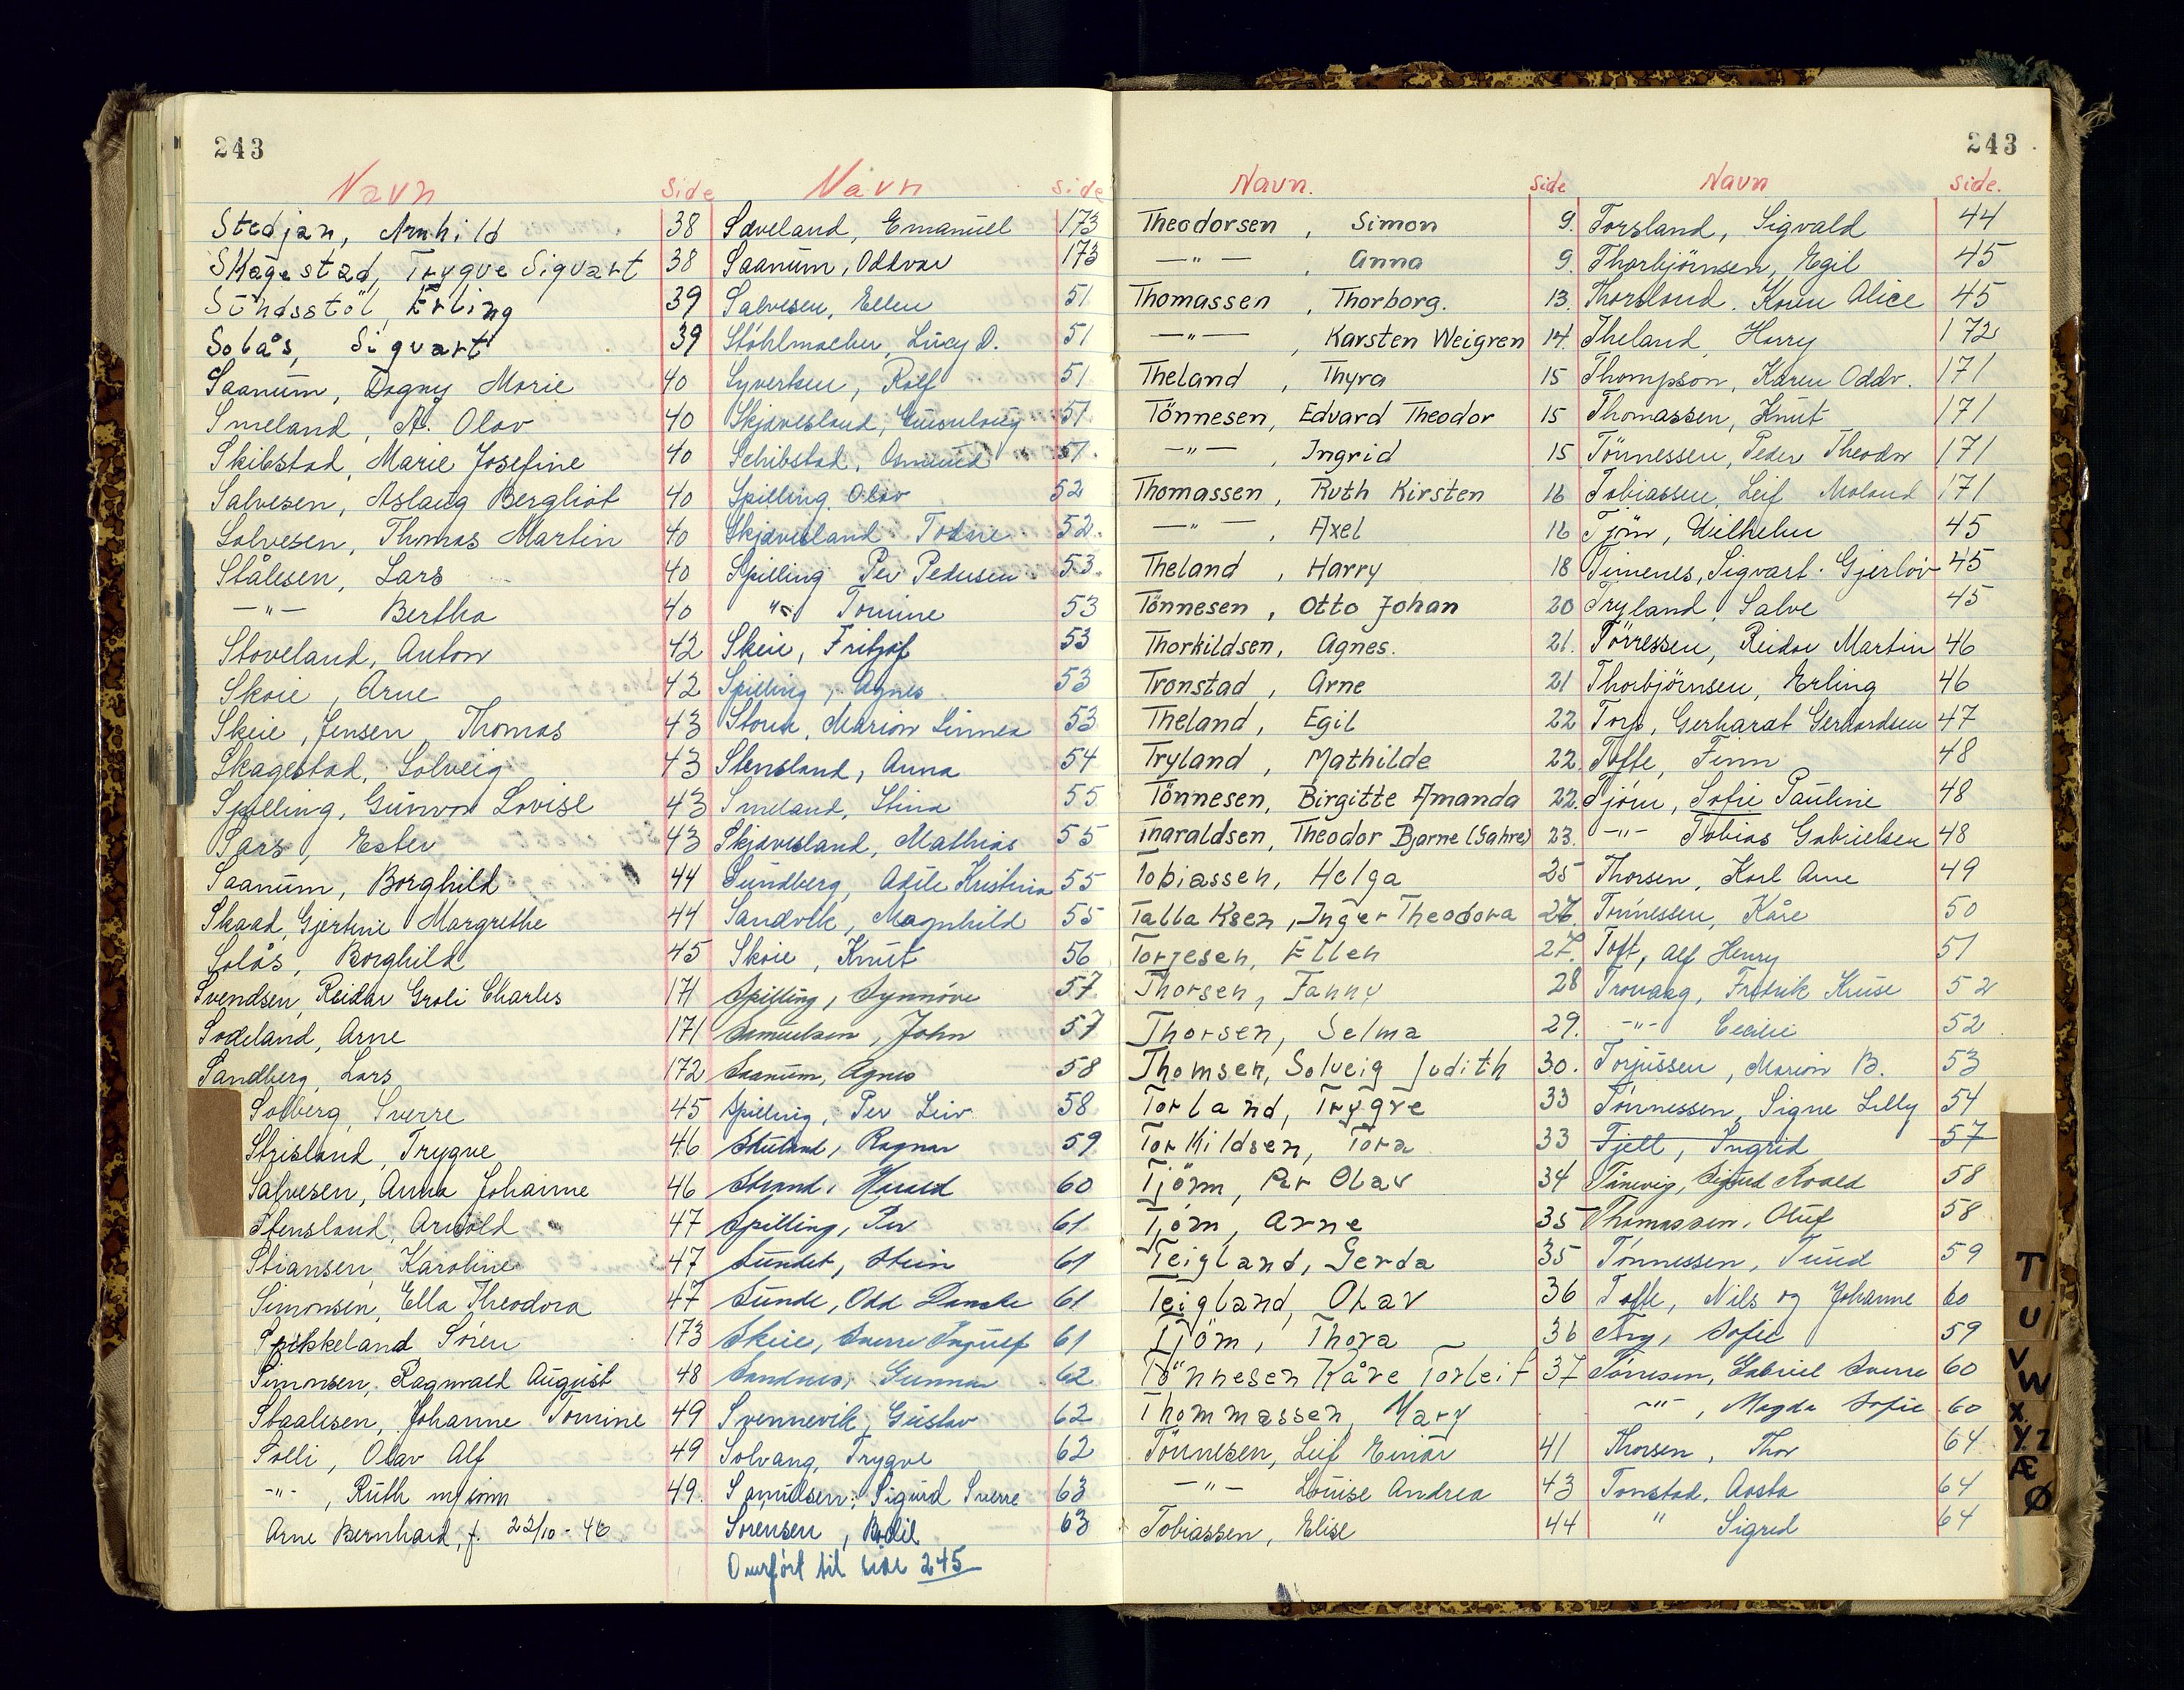 243
Navn Side
Stedjan, Arnhild 38
Skagestad, Trygve Sigvart 38
Sundsstöl, Erling 39
Solås, Sigvart 39
Saanum, Dagny Marie 40
Smeland, A. Olav 40
Skibstad, Marie Josefine 40
Salvesen, Aslaug Bergliot 40
Salvesen, Thomas Martin 40
Stålesen, Lars 40
—"— Bertha 40
Stoveland, Anton 42
Skoie, Arne 42
Skeie, Jensen, Thomas 43
Skagestad, Solveig 43
Spilling, Gunvor Lovise 43
Sars, Ester 43
Saanum, Borghild 44
Skaad, Gjertine Margrethe 44
Solås, Borghild 45
Svendsen, Reidar Groli Charles 171
Sodeland, Arne 171
Sandberg, Lars 172
Solberg, Sverre 45
Strisland, Trygve 46
Salvesen, Anna Johanne 46
Stensland, Arnold 47
Stiansen, Karoline 47
Simonsen, Ella Theodora 47
Spikkeland Sören 173
Simonsen, Ragnvald August 48
Staalesen, Johanne Tomine 49
Solli, Olav Alf 49
-"-, Ruth m/sönn 49.
Arne Bernhard, f. 22/10-46
Navn Side
Sæveland, Emanuel 173
Saanum, Oddvar 173
Salvesen, Ellen 51
Stöhlmacher, Lucy D. 51
Syvertsen, Rolf 51
Skjævesland, Gunnlaug 51
Schibstad, Osmund 51.
Spilling, Olav 52
Skjævesland Todne 52.
Spilling Per Pedersen 53.
"- Tomine 53
Skeie, Fritjof 53
Spilling, Agnes 53
Storm, Marion Linnea 53
Stensland, Anna 54
Smeland, Stina 55
Skjævesland, Mathias 55
Sundberg, Adele Kristina 55
Sandvik, Magnhild 55
Skoie, Knut 56
Spilling, Synnöve 57
Samuelsen, John 57
Saanum, Agnes 58
Spilling, Per Leiv 58
Skuland, Ragnar 59
Strand, Harald 60
Spilling, Per 61
Sundet, Stein 61
Sunde, Odd 61
Skeie, Sverre Ingulf 61
Sandnes, Gunnar 62
Svennevik, Gustav 62
Solvang, Trygve 62
Samuelsen, Sigurd Sverre 63
Sörensen, Bodil 63
Overfört til side 245
243
Navn. Side
Theodorsen, Simon 9.
—"—, Anna 9.
Thomassen, Thorborg. 13.
—"—, Karsten Weigren 14.
Theland, Thyra 15
Tönnesen, Edvard Theodor 15
—"—, Ingrid 15
Thomassen, Ruth Kirsten 16
—"—, Axel 16
Theland, Harry 18
Tönnesen, Otto Johan 20
Thorkildsen, Agnes. 21.
Tronstad, Arne 21
Theland, Egil 22
Tryland, Mathilde 22.
Tönnesen, Birgitte Amanda 22.
Tharaldsen, Theodor Bjarne (Sahre) 23.
Tobiassen, Helga 25
Tallaksen, Inger Theodora 26.
Torjesen, Ellen 27.
Thorsen, Fanny 28
Thorsen, Selma 29.
Thomsen, Solveig Judith 30.
Torland, Trygve 33
Torkildsen, Tora 33
Tjöm, Per Olav 34
Tjöm, Arne 35
Teigland, Gerda 35
Teigland, Olav 36
Tjöm, Thora 36
Tönnesen Kåre Torleif 37
Thommassen, Mary
Tönnesen, Leif Einar 41
—"— Louise Andrea 43
Tobiassen, Elise 44
Navn Side.
Torsland, Sigvald 44
Thorbjörnsen, Egil 45
Thorsland, Karen Alice 45
Theland, Harry 172
Thompson, Karen Oddv. 171
Thomassen, Knut 171
Tönnessen, Peder Theodor 171
Tobiassen, Leif Moland 171
Tjöm, Wilhelm 45
Timenes, Sigvart Gjerlöv 45
Tryland, Salve 45
Törressen, Reidar Martin 46
Thorbjörnsen, Erling 46
Torp, Gerharat Gerhardsen 47
Tofte, Finn 48
Tjöm, Sofie Pauline 48
-"- Tobias Gabrielsen 48
Thorsen, Karl Arne 49
Tönnessen, Kåre 50
Toft, Alf Henry 51
Tronaag, Fredrik Kruse 52
-"- Cecilie 52
Torjussen, Marion B. 53
Tönnessen, Signe Lilly 54
Fjell, Ingrid 57
Tånevig, Sigurd 58
Thomassen, Oluf 58
Tönnessen, Tuud 59
Tofte, Nils og Johanne 60
Try, Sofie 59
Tönnesen, Gabriel Sverre 60
-"-, Magda Sofie 60
Thorsen, Thor 64
Tonstad, Aasta 64
" Sigred 64
T
U
V
W
X
Y Z
Æ
Ø